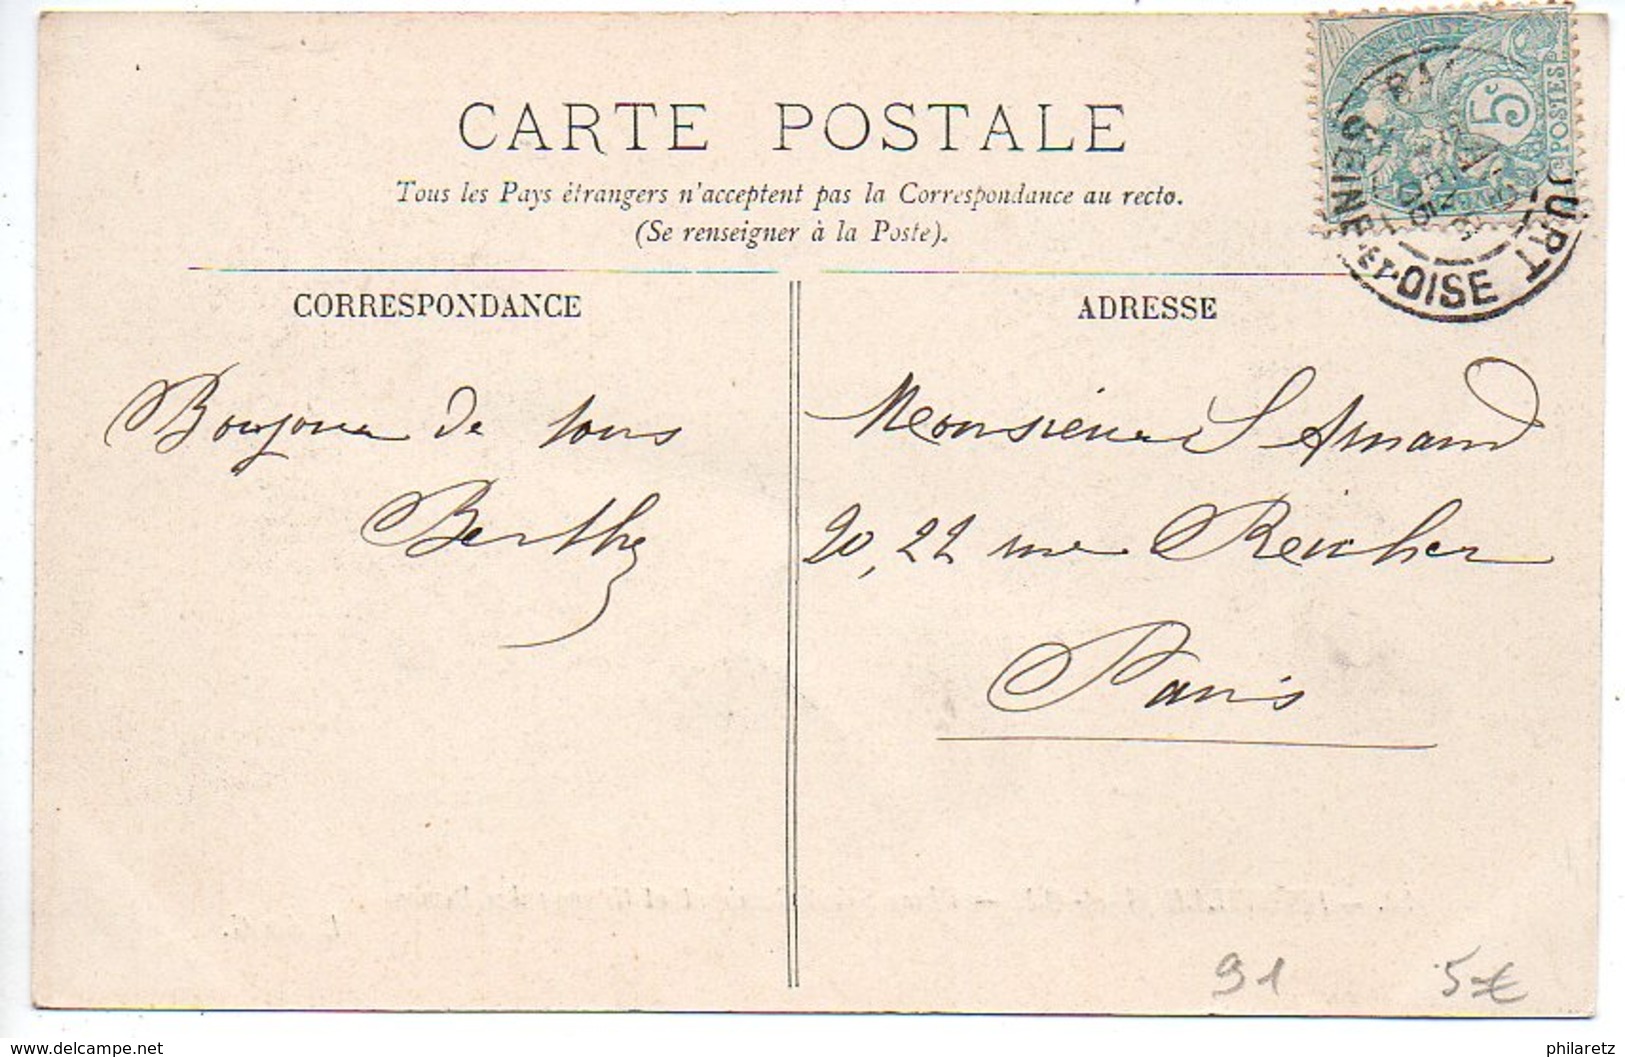 CARTE POSTALE
Tous les Pays étrangers n'acceptent pas la Correspondance au recto.
(Se renseigner à la Poste).
5c
POSTES
SEINE-ET-OISE
CORRESPONDANCE
ADRESSE
Bonjour de tous
Berthe
Monsieur S Armand
20, 22 rue Reicher
Paris
91
5€
www.delcampe.net
philaretz